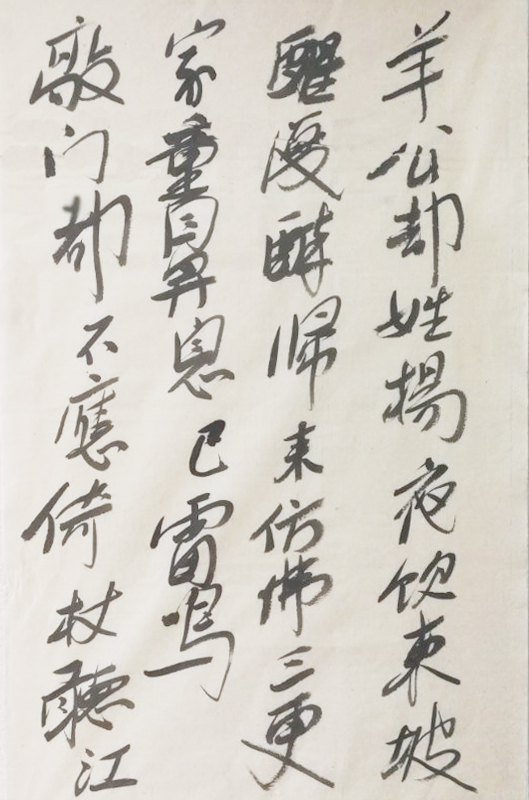 羊公却姓揚夜饮東坡
醒復醉帰来仿佛三更
家童鼻息已雷鸣
敲门都不應倚杖聽江